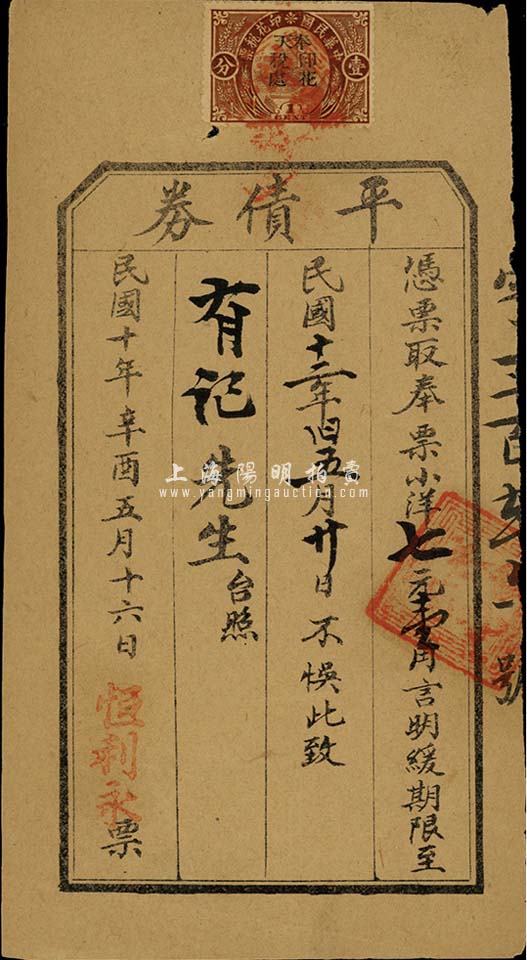 中華民國印花稅票
壹
分
奉天
印花
稅處
1
CENT
平債券
憑票取奉票小洋七元壹角言明緩期限至
民國十二年旧五月廿日不悞此致
有記先生台照
民國十年辛酉五月十六日恒利永票
號
上海陽明拍賣
www.yangmingauction.com